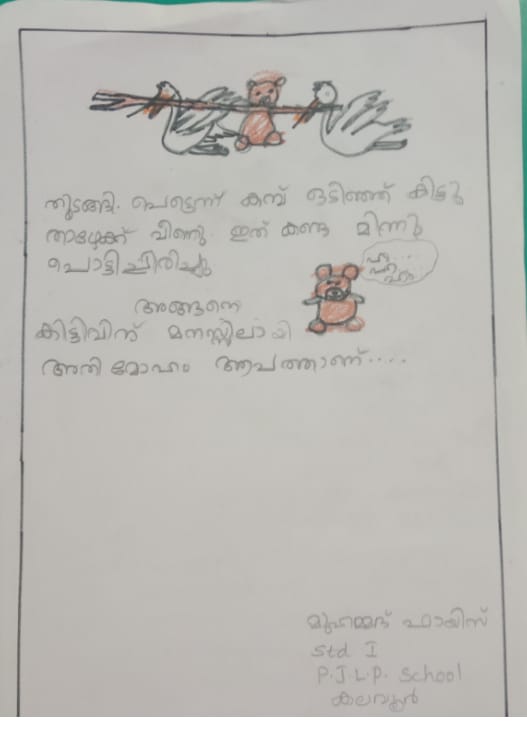 തുടങ്ങി. പെട്ടെന്ന് കമ്പ് ഒടിഞ്ഞ് കിട്ടു
താഴേക്ക് വീണു. ഇത് കണ്ട മിന്നു
പൊട്ടിച്ചിരിച്ചു
ഹ....
ഹഹ
ഹഹ..
അങ്ങനെ
കിട്ടിവിന് മനസ്സിലായി
അതി മോഹം ആപത്താണ്.....
മുഹമ്മദ് ഫായിസ്
Std I
P.J.L.P. School
കലവൂർ